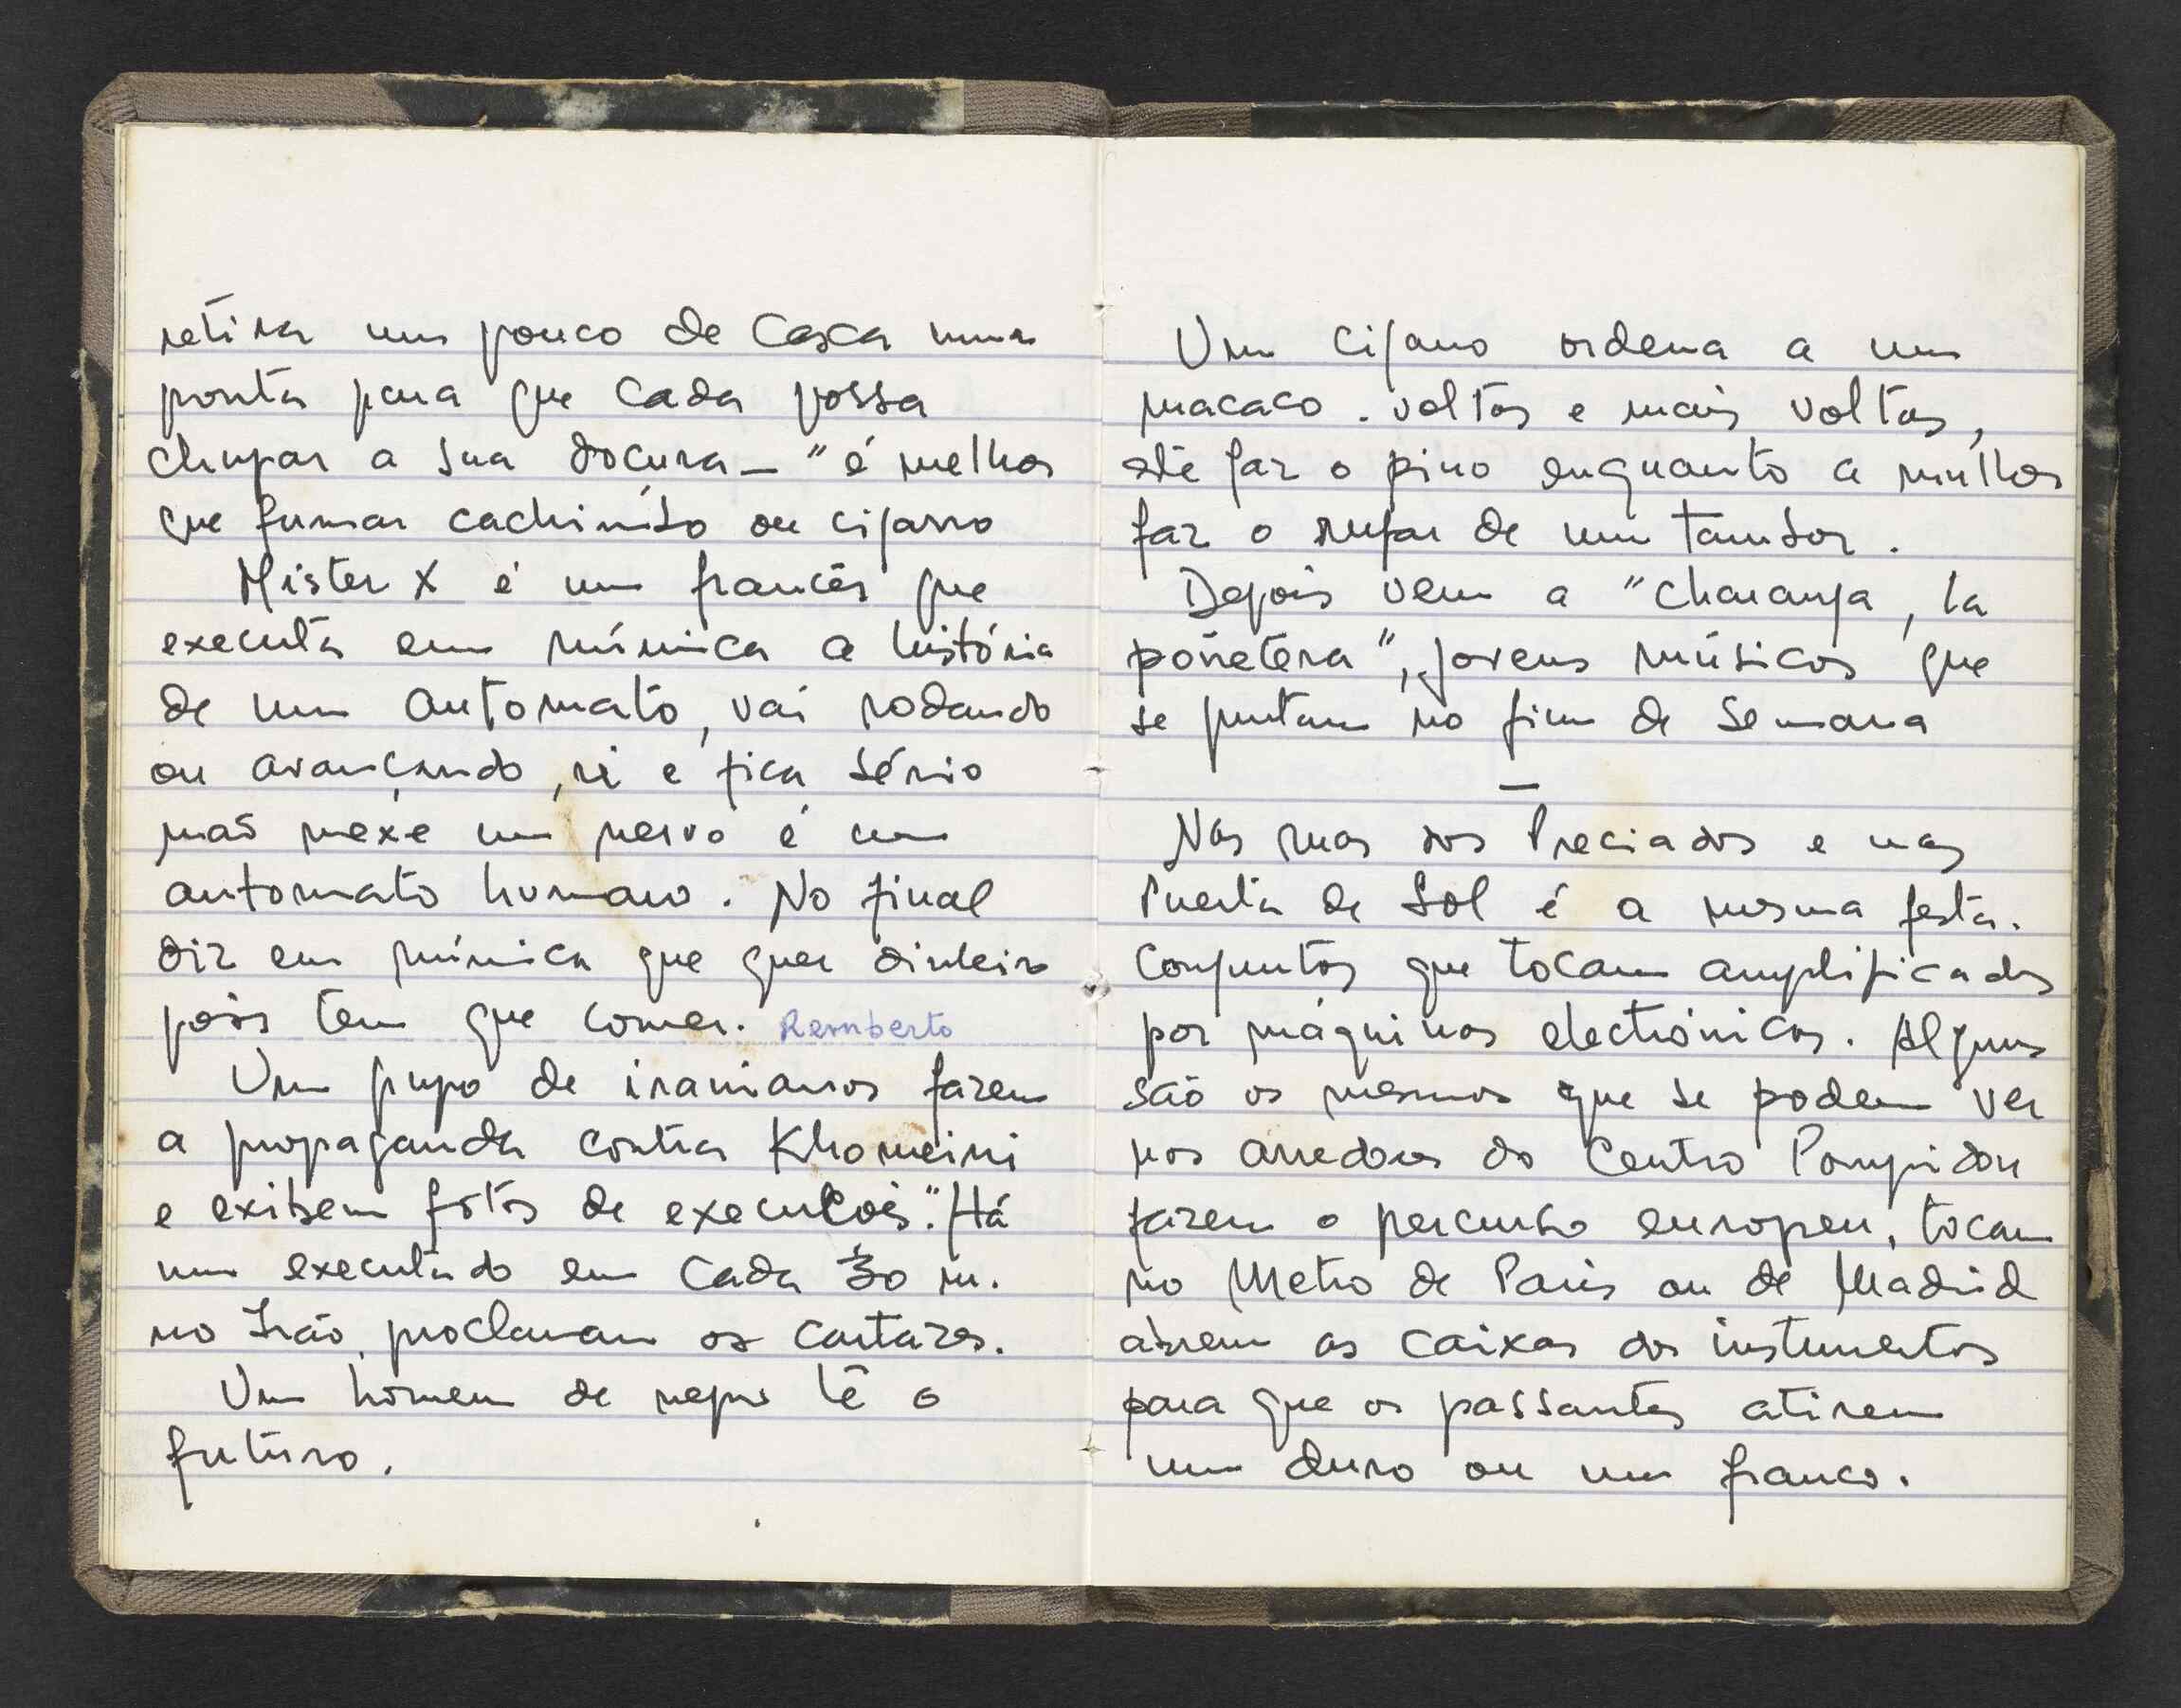 retira um pouco de casca numa
ponta para que cada possa
chupar a sua doçura — "é melhor
que fumar cachimbo ou cigarro
Mister X é um francês que
executa em mímica a história
de um automato, vai rodando
ou avançando, ri e fica sério
não mexe um nervo é um
automato humano. No final
diz em mímica que quer dinheiro
pois tem que comer. Remberto
Um grupo de iranianos fazem
a propaganda contra Khomeini
e exibem fotos de execuções." Há
um executado em cada 30 m.
no Irão, proclamam os cartazes.
Um homem de negro lê o
futuro.
Um cigano ordena a um
macaco. voltas e mais voltas,
até faz o pino enquanto a mulher
faz o rufar de um tambor.
Depois vem a "charanga, la
poñetera", jovens músicos que
se juntam no fim de semana
—
Nas ruas dos Preciados e nas
Puerta de Sol é a mesma festa.
Conjuntos que tocam amplificados
por máquinas electrónicas. Alguns
são os mesmos que se podem ver
nos arredores do Centro Pompidou
fazem o percurso europeu, tocam
no Metro de Paris ou de Madrid
abrem as caixas dos instumentos
para que os passantes atirem
um duro ou um franco.